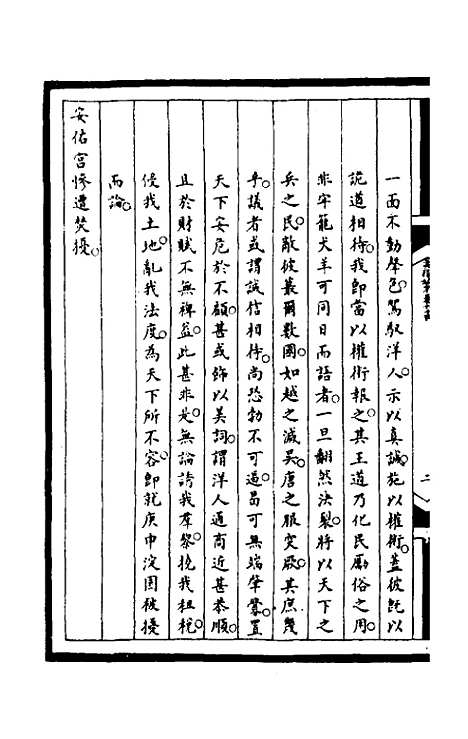 一面不動聲色。駕馭洋人。示以真誠。施以權術。蓋彼既以
詭道相待。我卽當以權術報之。其王道乃化民勵俗之用。
非牢籠犬羊可同日而語者。一旦翻然決裂。將以天下之
兵之民。敵彼叢爾數國。如越之滅吳。唐之服突厥。其庶幾
乎。議者或謂誠信相待。尚恐勃不可遏。曷可無端肇釁。置
天下安危於不顧。甚或飾以美詞。謂洋人通商近甚恭順。
且於財賦不無裨益。此甚非是。無論誘我羣黎。挽我租稅。
侵我土地。亂我法度。為天下所不容。卽就庚申淀園被擾
而論。
安佑宮慘遭焚擾。
二